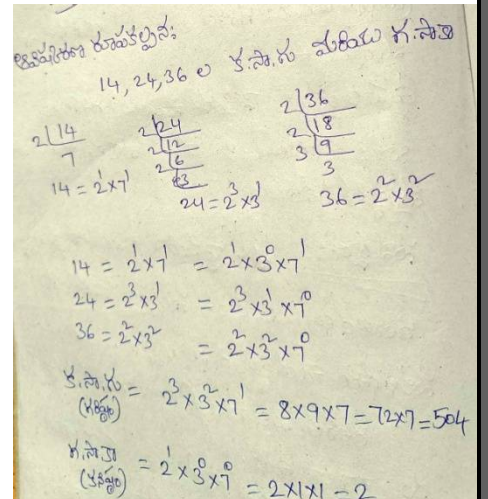 ఆవిష్కరణ రూపకల్పన:
14, 24, 36 ల క.సా.గు మరియు గ.సా.కా
2 | 14
7
14 = 2¹×7¹
2 | 24
2 | 12
2 | 6
3
24 = 2³×3¹
2 | 36
2 | 18
3 | 9
3
36 = 2²×3²
14 = 2¹×7¹ = 2¹×3⁰×7¹
24 = 2³×3¹ = 2³×3¹×7⁰
36 = 2²×3² = 2²×3²×7⁰
క.సా.గు (గరిష్ఠం) = 2³×3²×7¹ = 8×9×7 = 72×7 = 504
గ.సా.కా (కనిష్ఠం) = 2¹×3⁰×7⁰ = 2×1×1 = 2